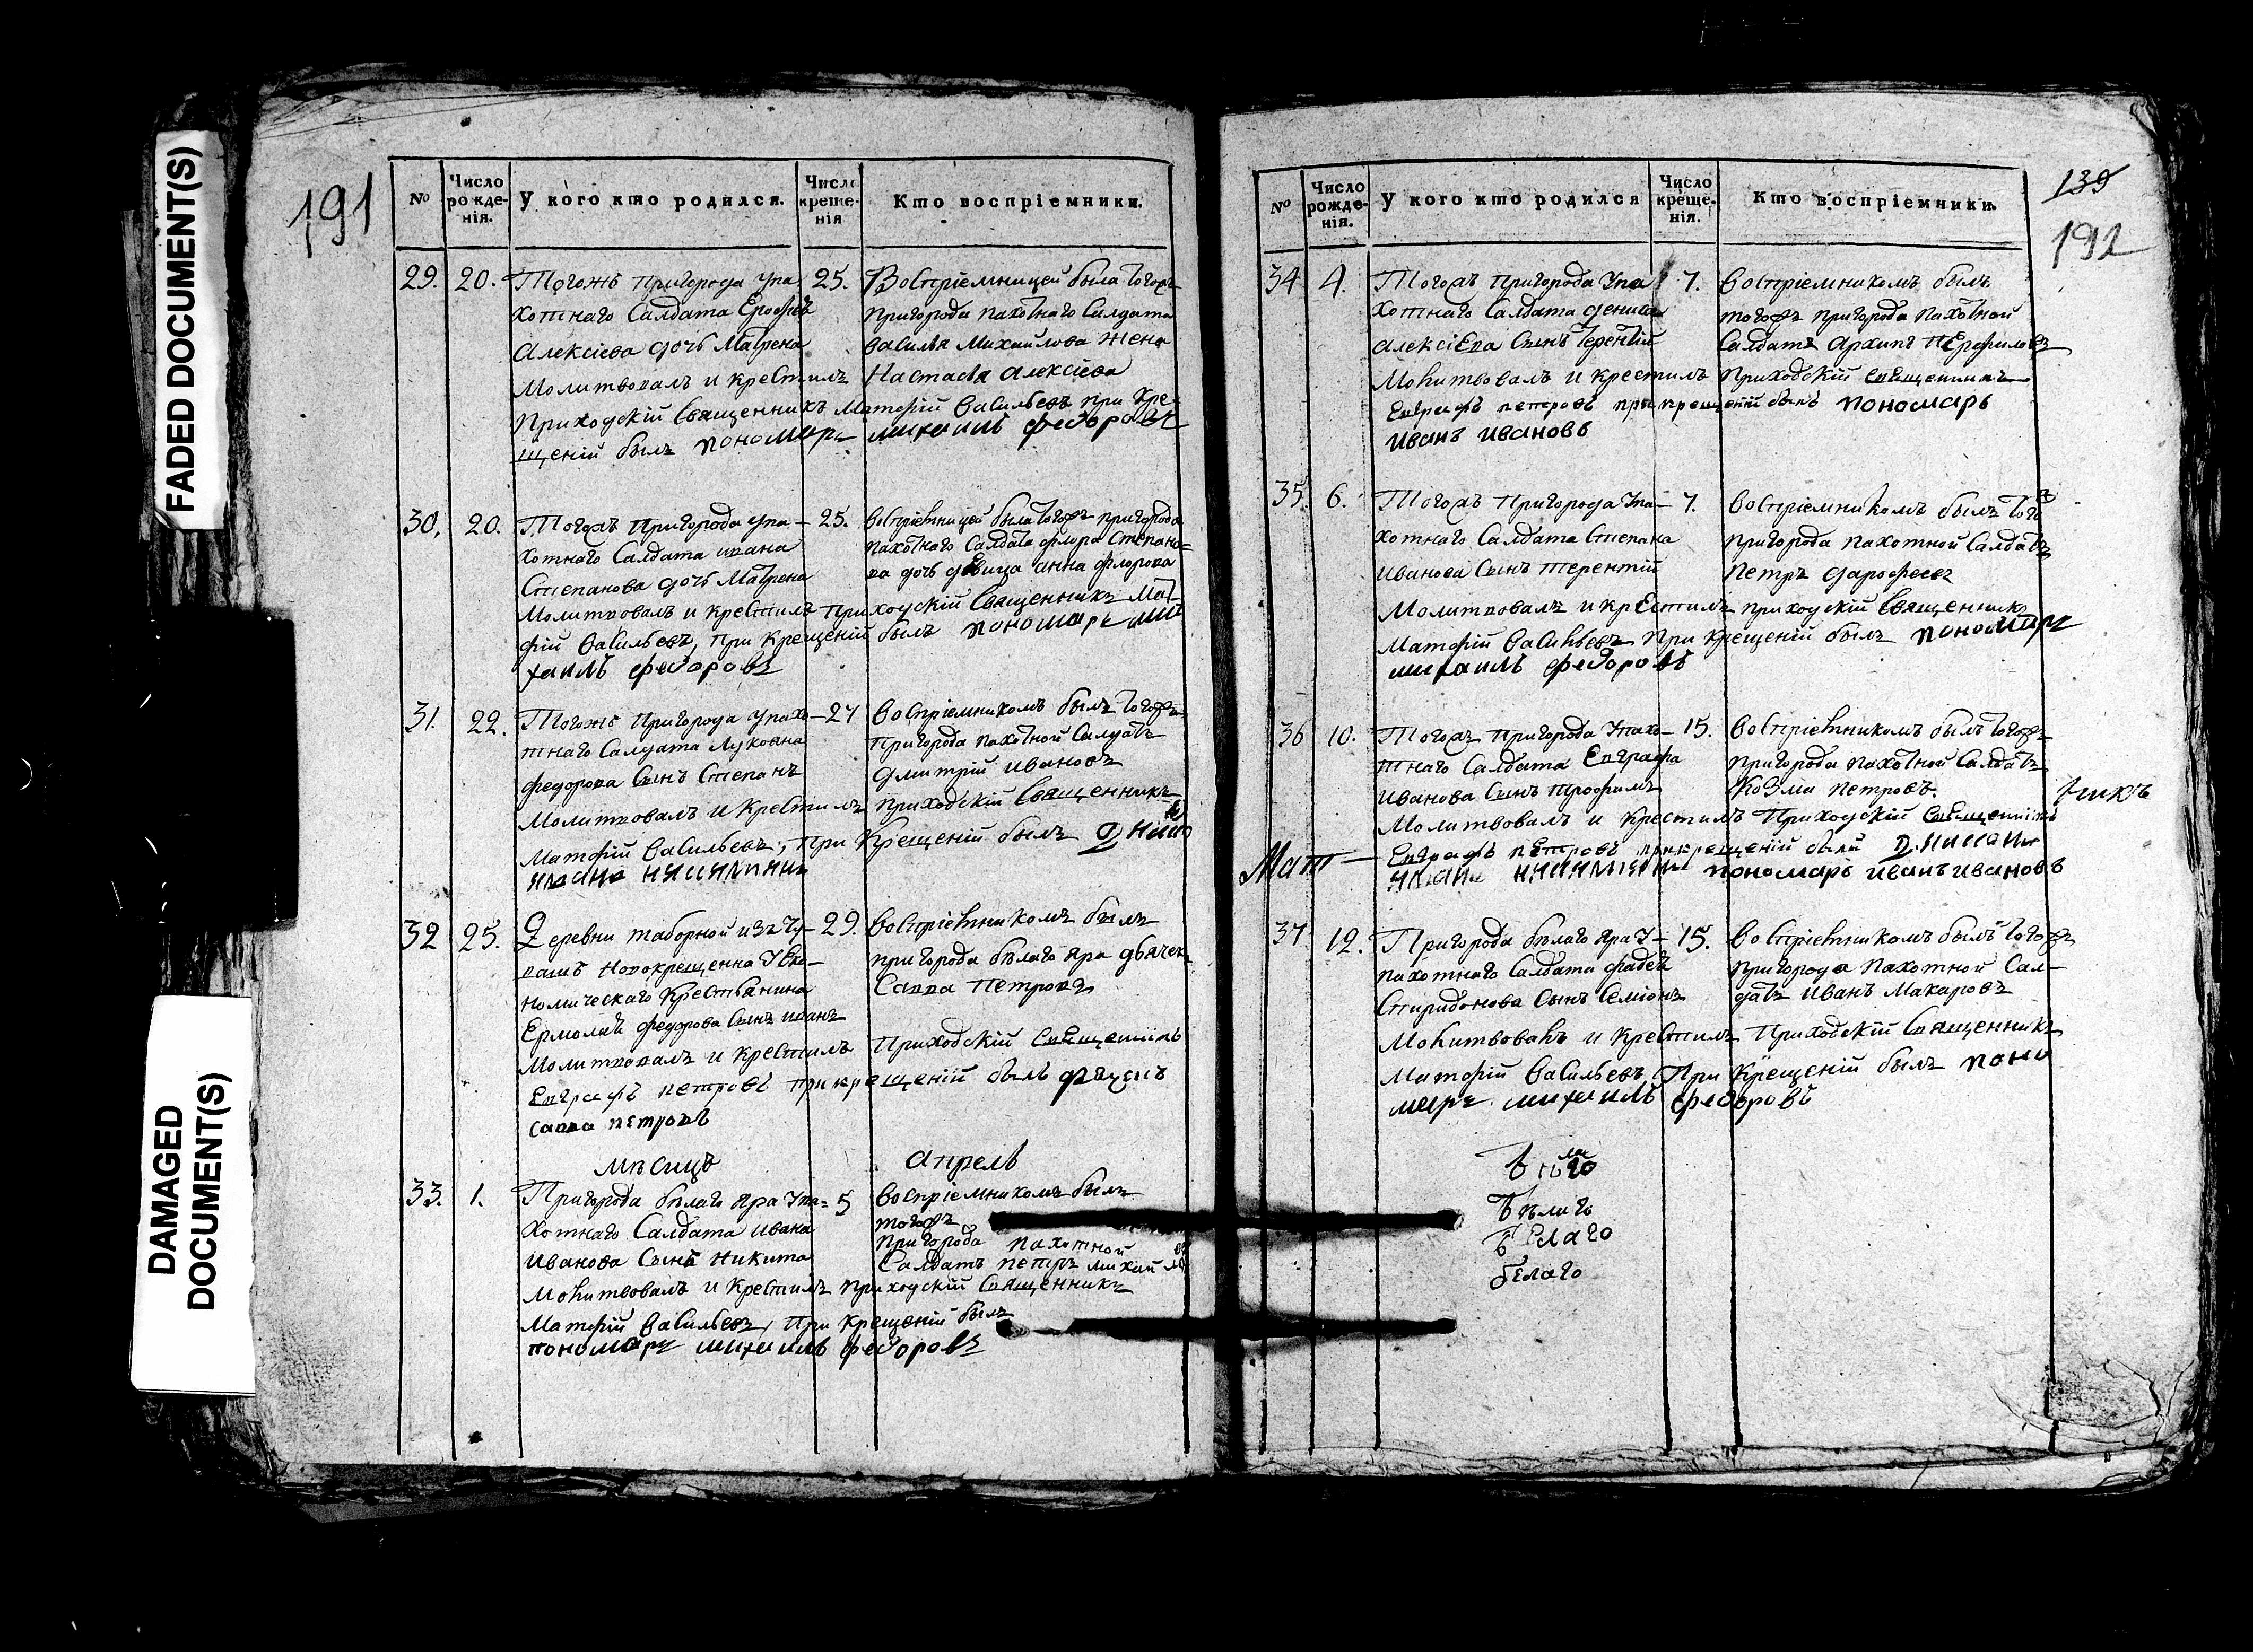 FADED DOCUMENT(S)
DAMAGED
DOCUMENT(S)
191
№
Число рожденія.
У кого кто родился.
Число крещенія
Кто воспріемники.
29. 20. Тогожъ пригорода упа 25. Воспріемницей была тогожъ
хотнаго Салдата Ерофѣя пригорода пахотнаго Салдата
Алексіева дочь Матрена василья Михайлова жена
Молитвовалъ и крестилъ Настасья алексіева
Приходскій Священникъ Матфій Васильевъ при кре-
щеній былъ пономарь михаилъ федоровъ
30. 20. Тогожъ Пригорода упа- 25. воспріемницей была тогожъ пригорода
хотнаго Салдата ивана пахотнаго Салдата флора Степано-
Степанова дочь Матрена ва дочь дѣвица анна флорова
Молитвовалъ и крестилъ приходскій Священникъ Мат-
фій Васильевъ, при крещеній былъ пономарь ми
хаилъ федоровъ
31. 22. Тогожъ Пригорода упахо- 27 воспріемникомъ былъ тогожъ
тнаго Салдата Лукояна пригорода пахотной Салдатъ
федорова Сынъ Степанъ дмитрій ивановъ
Молитвовалъ и Крестилъ приходскій Священникъ
Матфій Васильевъ, при Крещеній былъ
32 25. Деревни таборной изъ чу- 29. воспріемникомъ былъ
вашъ новокрещенна Уеко- пригорода бѣлаго яра дьячек
номическаго Крестьянина Савва Петровъ
Ермолай федорова Сынъ иванъ
Молитвовалъ и крестилъ Приходскій Священникъ
Евграфъ петровъ при крещеній былъ дьячекъ
савва петровъ
мѣсицъ апрель
33. 1. Пригорода бѣлаго яра Упа- 5 воспріемникомъ былъ
хотнаго Салдата ивана тогожъ
Иванова Сынъ Никита пригорода пахотной
Салдатъ петръ михай
Молитвовалъ и Крестилъ приходскій Священникъ
Матфій Васильевъ, при крещеній былъ
пономарь михаилъ федоровъ
139
192
№
Число рожденія.
У кого кто родился
Число крещенія.
Кто воспріемники.
34 4. Тогожъ пригорода Упа 7. воспріемникомъ былъ
хотнаго Салдата дениса тогожъ пригорода пахотной
алексіева Сынъ Терентій Салдатъ Архипъ
Молитвовалъ и крестилъ Приходскій священникъ
Евграфъ петровъ при крещеній былъ пономарь
иванъ ивановъ
35. 6. Тогожъ Пригорода Упа- 7. воспріемникомъ былъ тогожъ
хотнаго Салдата Степана пригорода пахотной Салдатъ
иванова Сынъ терентій Петръ дарофеевъ
Молитвовалъ и крестилъ приходскій Священникъ
Матфій Васильевъ при крещеній былъ пономарь
михаилъ федоровъ
36 10. Тогожъ Пригорода Упахо- 15. воспріемникомъ былъ тогожъ
тнаго Салдата Евграфа пригорода пахотной Салдатъ
иванова Сынъ трофимъ Козма петровъ.
Молитвовалъ и крестилъ Приходскій Священникъ
Мат Евграфъ петровъ при крещеній были
пономарь иванъ ивановъ
37. 12. Пригорода бѣлаго яра У- 15. воспріемникомъ былъ тогожъ
пахотнаго Салдата фадея пригорода пахотной Сал-
Спиридонова Сынъ Семіонъ датъ иванъ Макаровъ
Молитвовалъ и крестилъ Приходскій Священникъ
Матфій Васильевъ, При крещеній былъ поно
марь михаилъ федоровъ
бѣлаго
белаго
белаго